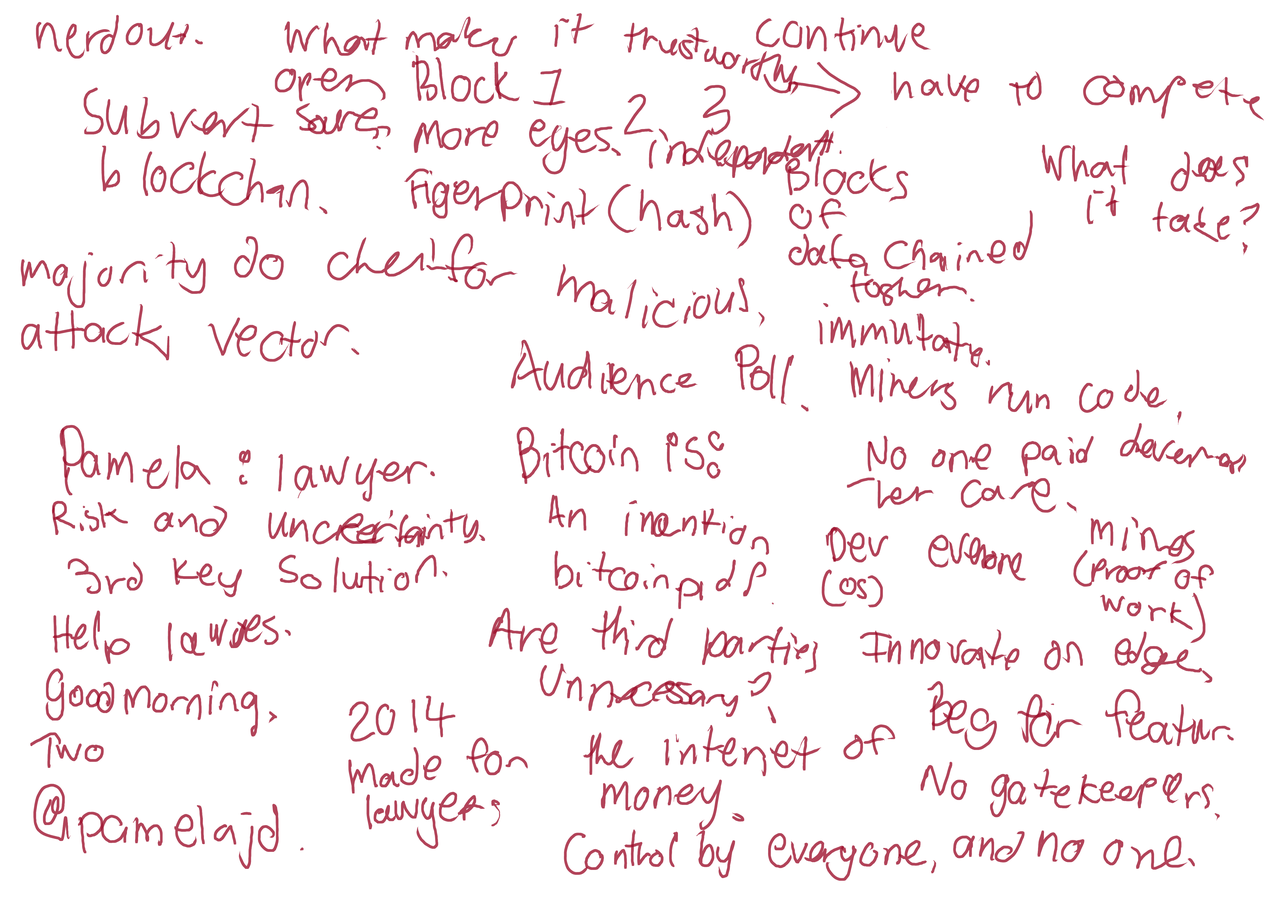 nerdout.
Subvert
blockchan.
majority do for
attack vector.
Pamela : lawyer.
Risk and uncertainty.
3rd key solution.
Help
Good morning,
Two
@pamelajd.
2014
made for
lawyers
What makes it trustworthy
open Block 1 2 3
more eyes. independent.
Figerprint (hash)
malicious.
Audience Poll.
Bitcoin is:
An
bitcoin pdf.
Are third parties
Unnecessary?
the internet of
money.
Control by everyone, and no one.
continue
have to compete
Blocks
of
data chained
What does
it take?
Miners run code.
No one paid
care.
Dev
(OS)
(proof of
work)
Innovate on edge,
Beg for featur.
No gatekeepers.